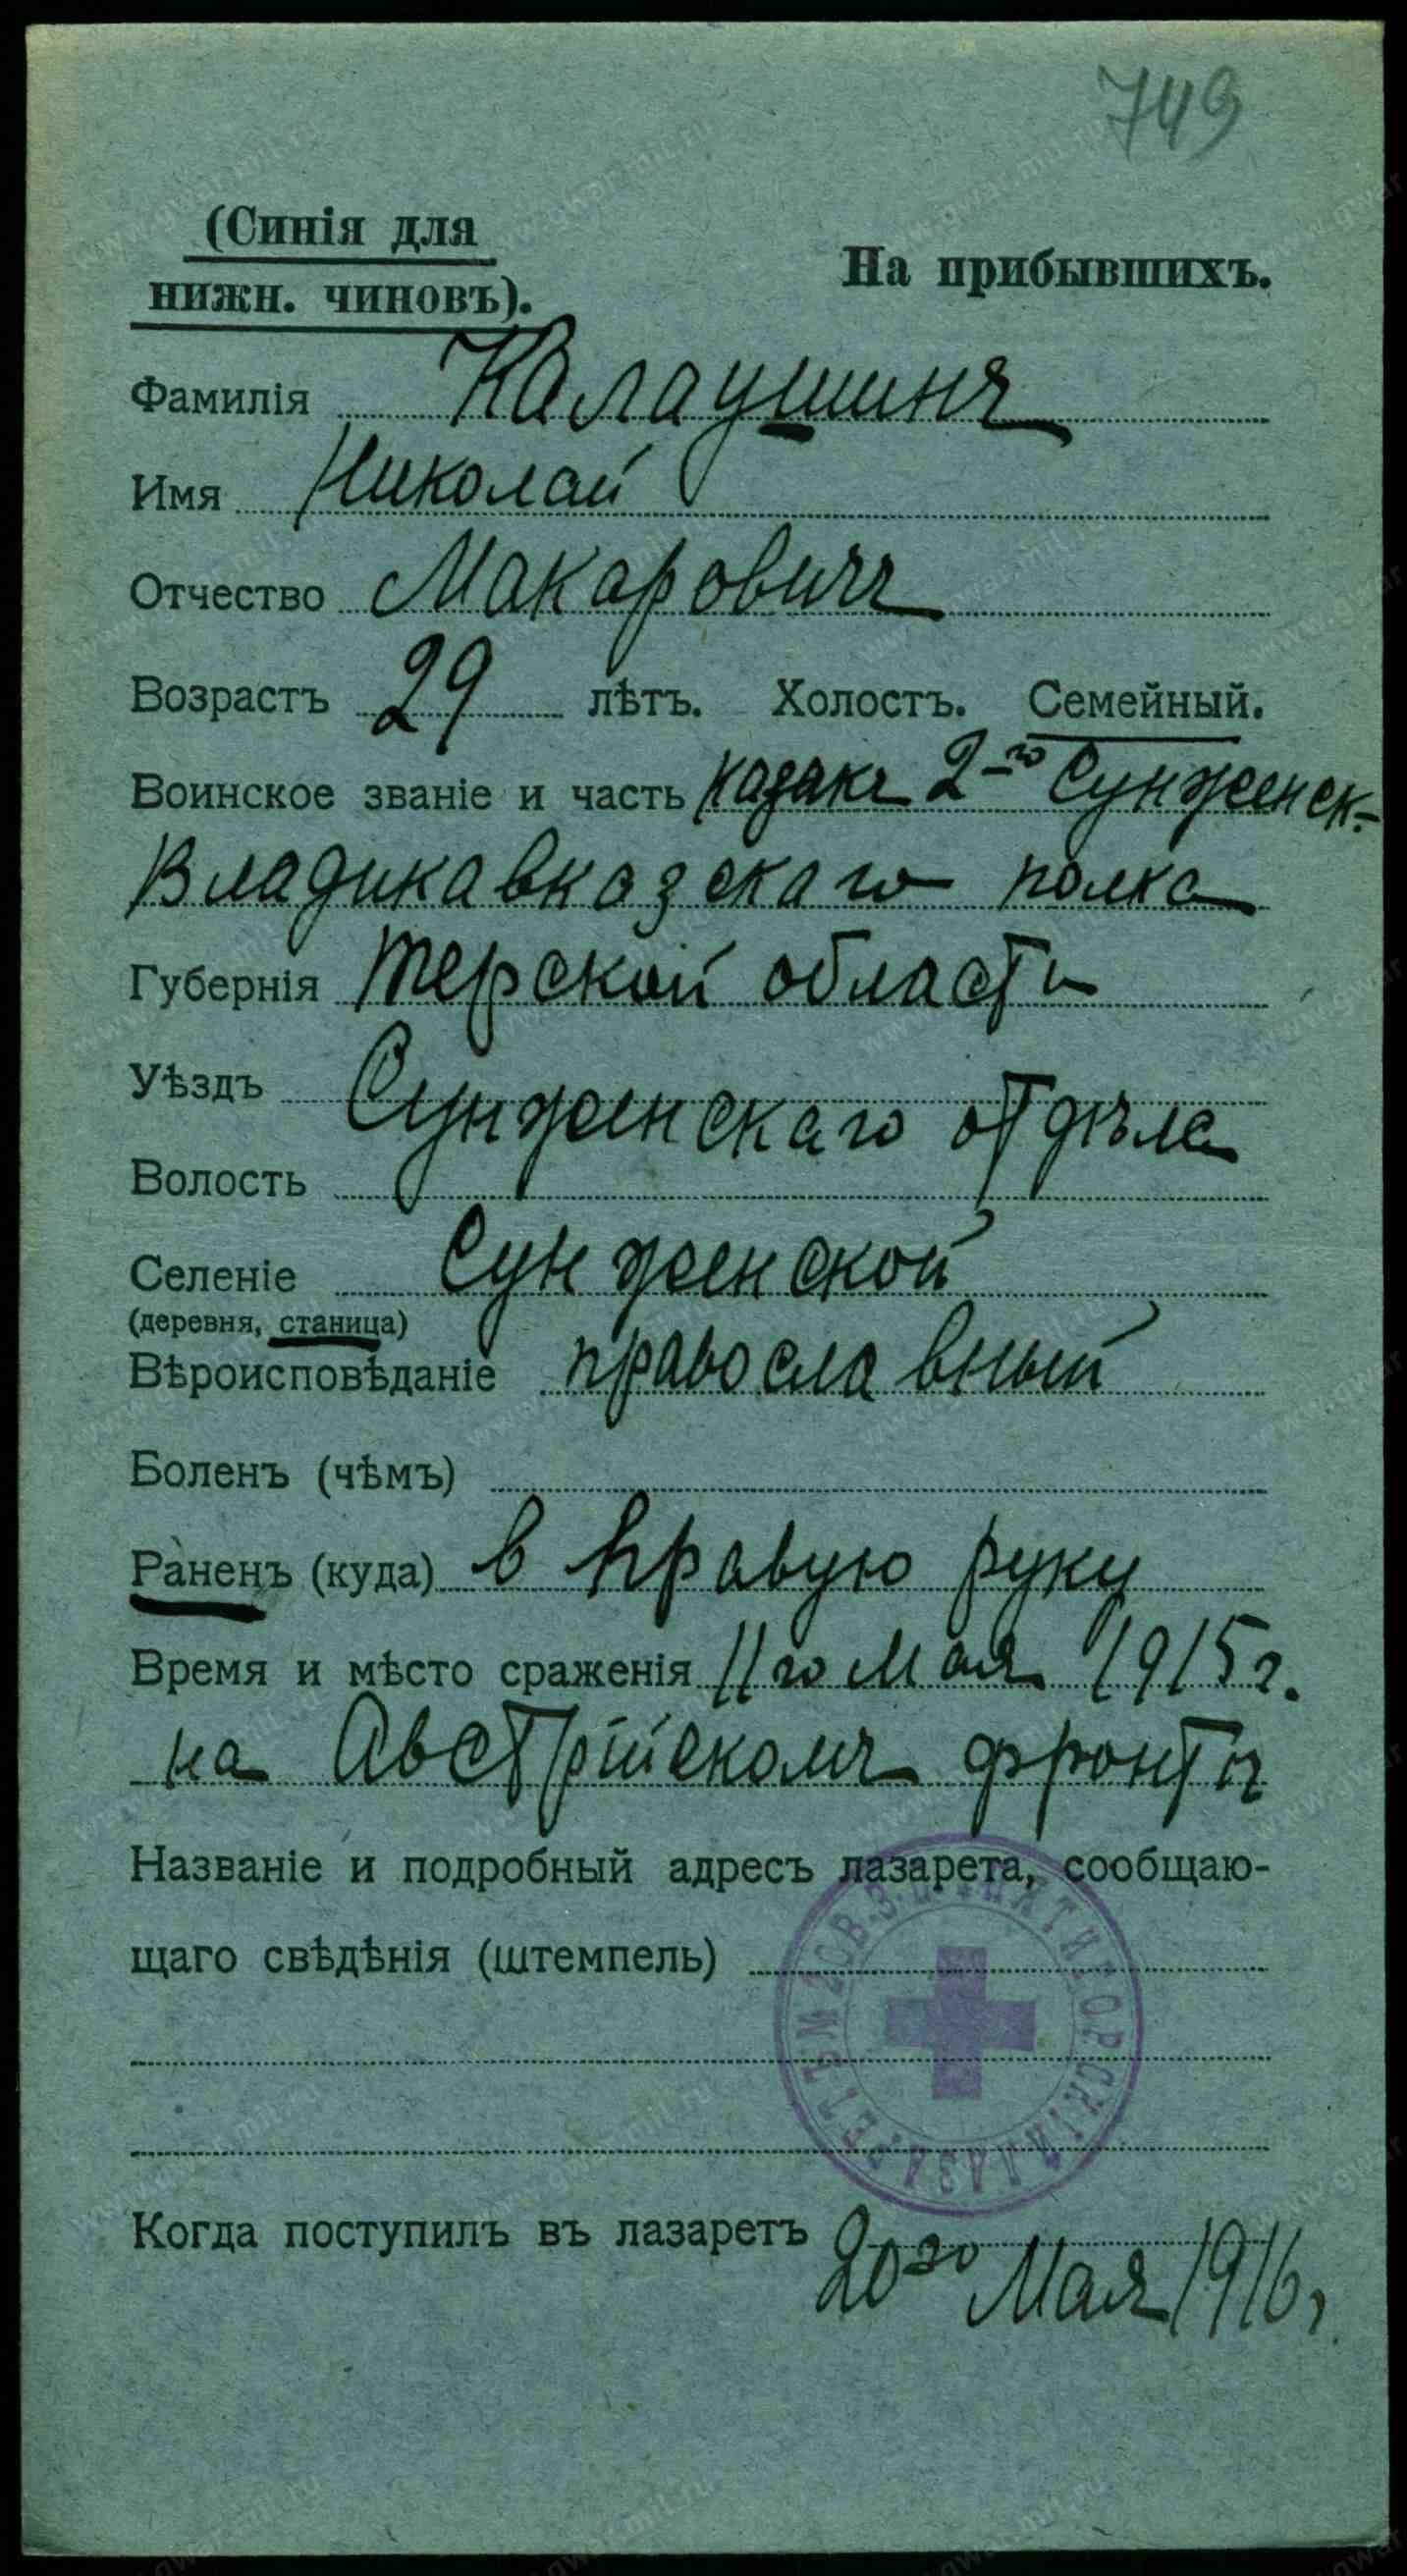 749
(Синія для
нижн. чиновъ).
На прибывшихъ.
Фамилія Калаушинъ
Имя Николай
Отчество Макаровичъ
Возрастъ 29 лѣтъ. Холостъ. Семейный.
Воинское званіе и часть казакъ 2-го Сунженск-
Владикавказскаго полка
Губернія Терской области
Уѣздъ Сунженскаго отдѣла
Волость
Селеніе Сунженской
(деревня, станица)
Вѣроисповѣданіе православный
Боленъ (чѣмъ)
Раненъ (куда) в правую руку
Время и мѣсто сраженія 11го Мая 1915 г.
на Австрійскомъ фронтѣ
Названіе и подробный адресъ лазарета, сообщаю-
щаго свѣдѣнія (штемпель)
Когда поступилъ въ лазаретъ
20го Мая 1916 г.
www.gwar.mil.ru